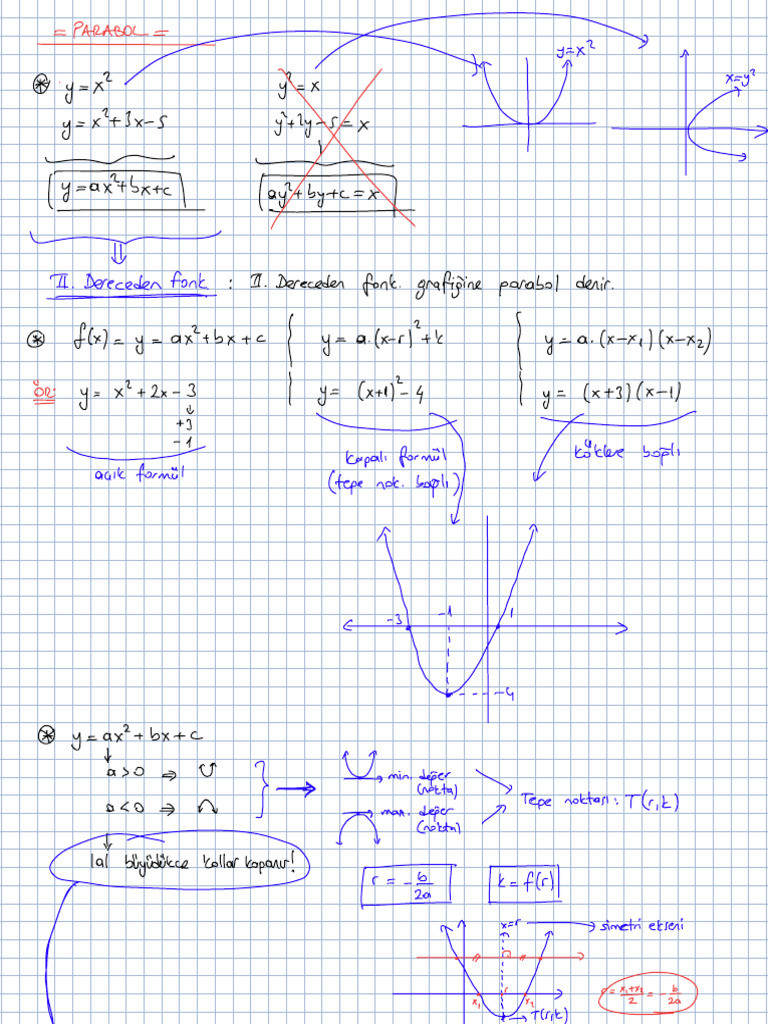 = PARABOL =
* y = x²
y² = x
y = x²
x = y²
y = x² + 3x - 5
y² + 2y - 5 = x
y = ax² + bx + c
ay² + by + c = x
II. Dereceden fonk : II. Dereceden fonk. grafiğine parabol denir.
* f(x) = y = ax² + bx + c { y = a.(x-r)² + k { y = a.(x-x₁)(x-x₂)
ör: y = x² + 2x - 3 { y = (x+1)² - 4 { y = (x+3)(x-1)
+3
-1
açık formül
kapalı formül
(tepe nok. bağlı)
köklere bağlı
-3 -1 1
-4
* y = ax² + bx + c
a>0 ⇒ ∪
a<0 ⇒ ∩
min. değer
(nokta)
max. değer
(nokta)
Tepe noktası: T(r,k)
|a| büyüdükçe kollar kapanır!
r = -b/2a
k = f(r)
x=r → simetri ekseni
x₁ r x₂
T(r,k)
r = (x₁+x₂)/2 = -b/2a